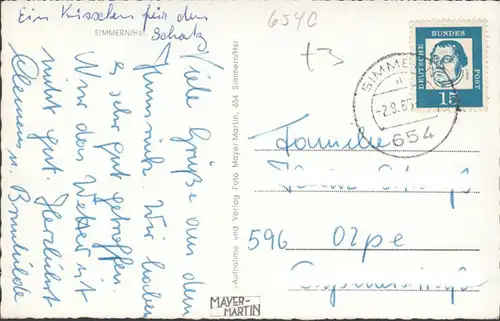 Ein Küsschen für den
Schatz
SIMMERN/HSR
6540
t3
Viele Grüße aus dem
Hunsrück. Wir haben
es sehr gut getroffen.
Nur das Wetter ist
nicht gut. Herzlichst
Clemens u. Brunhilde
Aufnahme und Verlag Foto Mayer-Martin, 654 Simmern/Hsr
MAYER-
MARTIN
DEUTSCHE BUNDES POST
15
SIMMERN
-2.9.63
654
Familie
596 Olpe